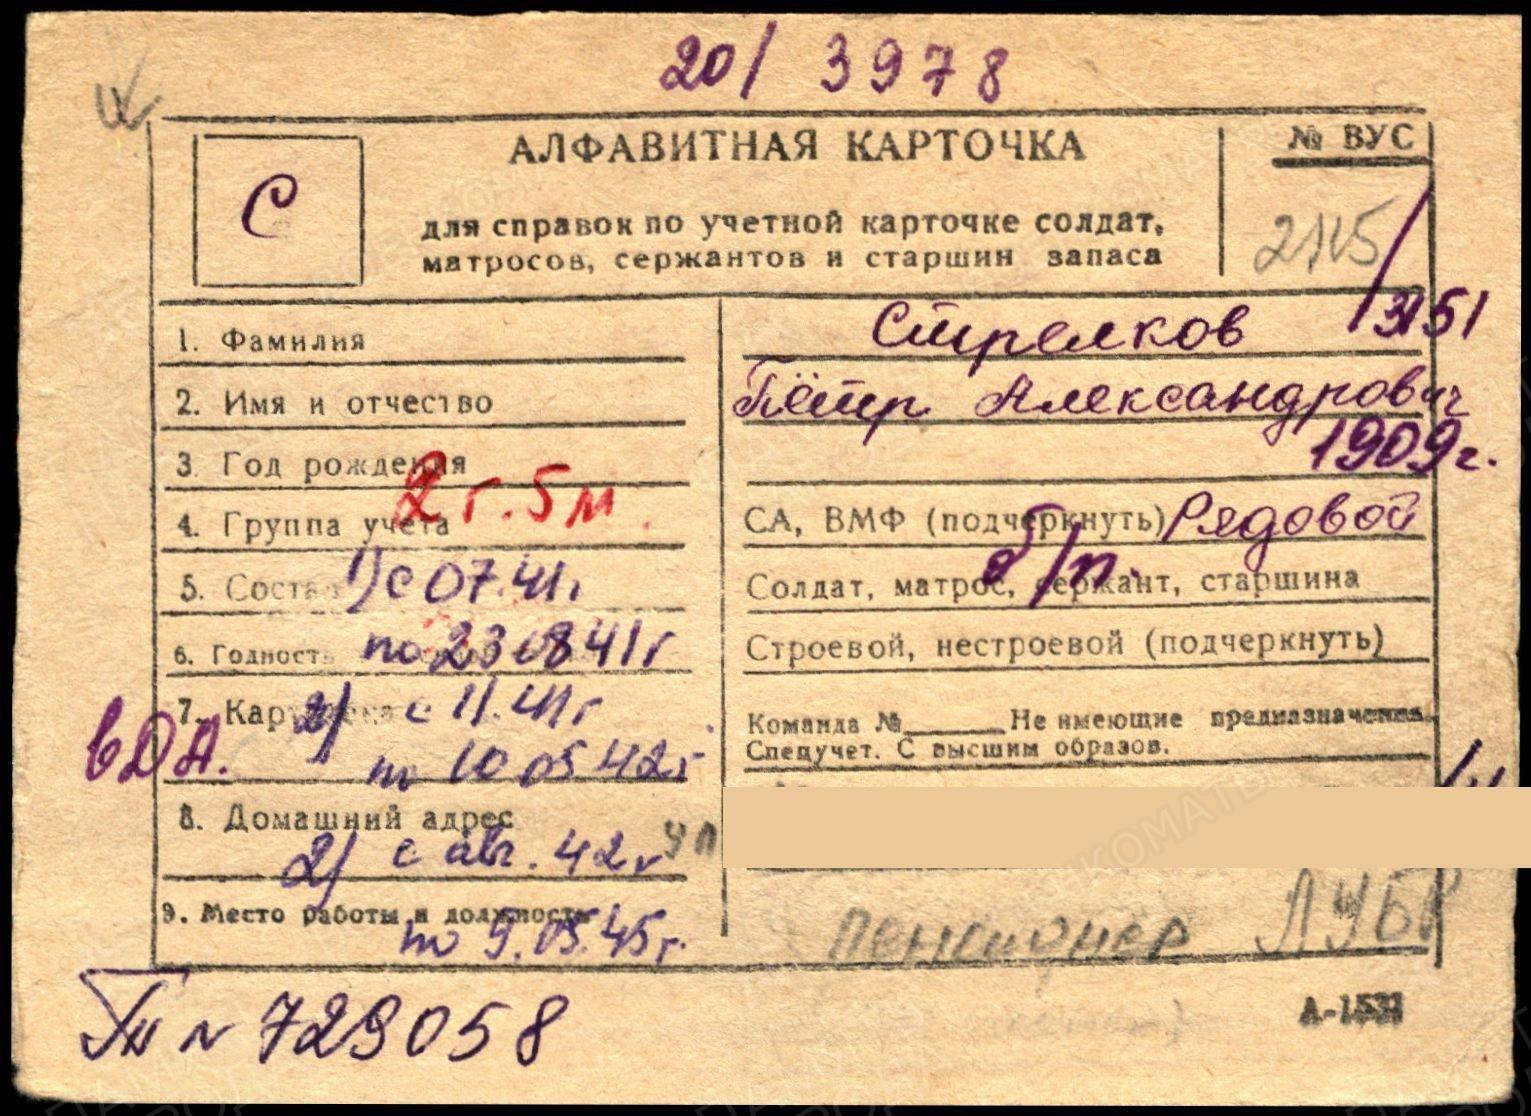 20/ 3978
С
АЛФАВИТНАЯ КАРТОЧКА
№ ВУС
для справок по учетной карточке солдат,
матросов, сержантов и старшин запаса
1. Фамилия
Стрелков
3151
2. Имя и отчество
Пётр Александрович
3. Год рождения
1909г.
2 г. 5 м.
4. Группа учета
СА, ВМФ (подчеркнуть) Рядовой
5. Состав
1) с 07.41г
Солдат, матрос, сержант, старшина
б/п.
6. Годность
по 23 08 41г
Строевой, нестроевой (подчеркнуть)
7. Карточка
2) с 11.41г
по 10 05 42г
Команда № Не имеющие предназначения.
Спецучет. С высшим образов.
8. Домашний адрес
2) с авг. 42г
ул
9. Место работы и должность
по 9.05.45г.
пенсионер
№ 729058
А-1531